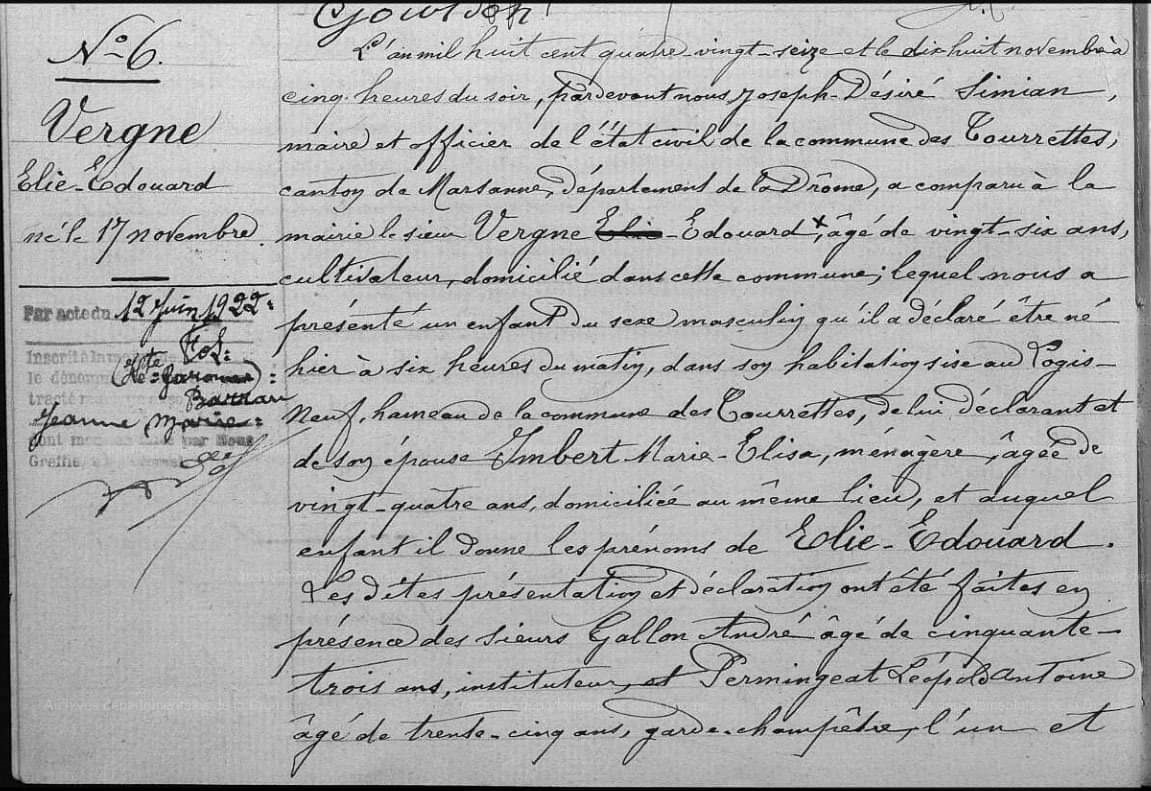 N° 6.
Vergne
Elie-Edouard
né le 17 novembre.
Par acte du 12 Juin 1922:
Inscrit à la
le dénommé
Jeanne Marie:
par Nous
Greffe
L'an mil huit cent quatre-vingt-seize et le dix huit novembre à
cinq heures du soir, pardevant nous Joseph-Désiré Simian,
maire et officier de l'état civil de la commune des Tourrettes,
canton de Marsanne, département de la Drôme, a comparu à la
mairie le sieur Vergne Elie-Edouard x, âgé de vingt-six ans,
cultivateur, domicilié dans cette commune; lequel nous a
présenté un enfant du sexe masculin qu'il a déclaré être né
hier à six heures du matin, dans son habitation sise au Logis-
Neuf, hameau de la commune des Tourrettes, de lui déclarant et
de son épouse Imbert Marie-Elisa, ménagère, âgée de
vingt-quatre ans, domiciliée au même lieu, et auquel
enfant il donne les prénoms de Elie-Edouard.
Les dites présentation et déclaration ont été faites en
présence des sieurs Gallon André âgé de cinquante-
trois ans, instituteur, et Permingeat Léopold Antoine
âgé de trente-cinq ans, garde-champêtre, l'un et